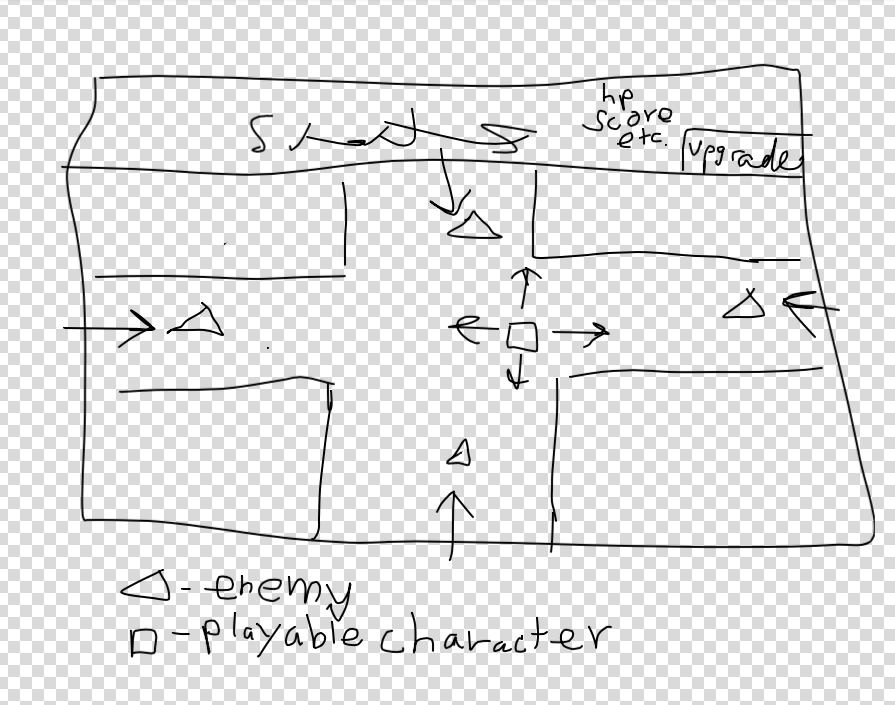 hp
score
etc.
upgrade
△ - enemy
□ - playable character